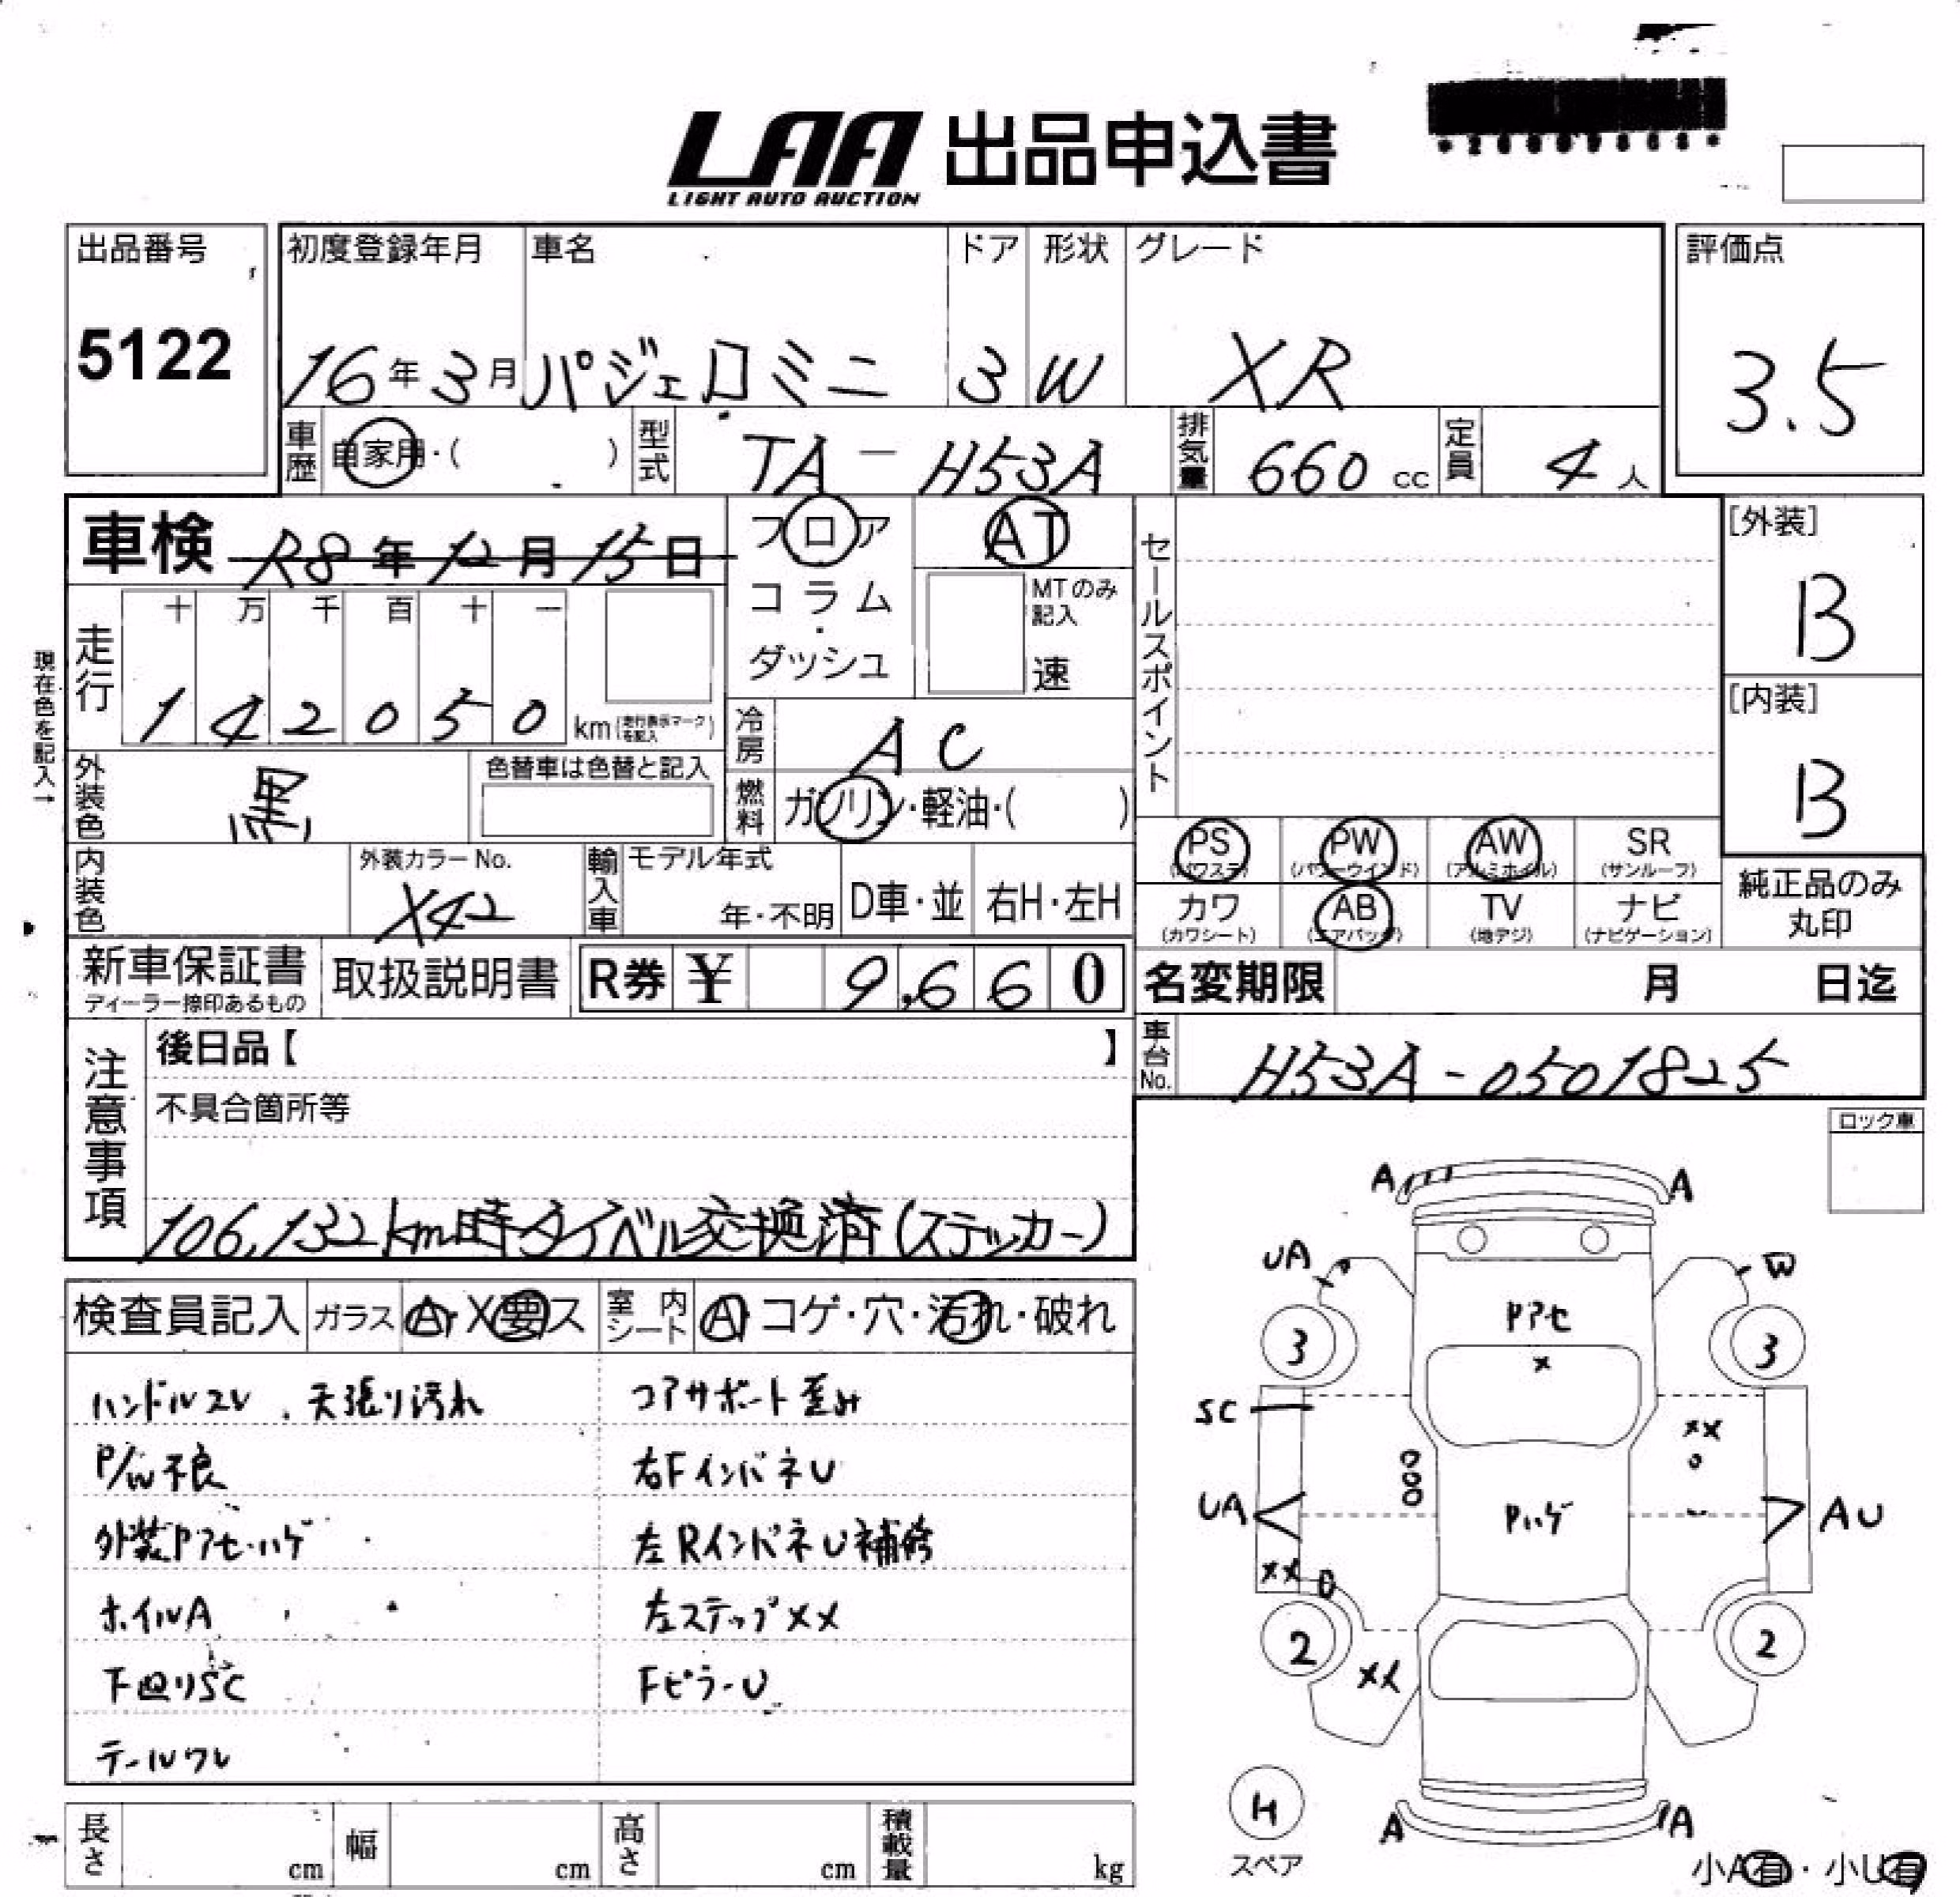 LAA 出品申込書
LIGHT AUTO AUCTION
出品番号
5122
初度登録年月 車名 ドア 形状 グレード
16年3月 パジェロミニ 3 W XR
評価点
3.5
車歴 自家用・( ) 型式 TA-H53A 排気量 660cc 定員 4人
車検 R8年12月15日
フロア
コラム・
ダッシュ
AT
MTのみ記入
速
セールスポイント
[外装]
B
[内装]
B
現在色を記入→
走行 十 万 千 百 十 一
142050 km(走行表示マークを記入)
冷房 AC
外装色 黒 色替車は色替と記入
燃料 ガソリン・軽油・( )
内装色 外装カラーNo. X42
輸入車 モデル年式 年・不明 D車・並 右H・左H
PS (パワステ) PW (パワーウインド) AW (アルミホイル) SR (サンルーフ)
カワ (カワシート) AB (エアバッグ) TV (地デジ) ナビ (ナビゲーション)
純正品のみ
丸印
新車保証書 ディーラー捺印あるもの 取扱説明書 R券 ¥ 9,660
名変期限 月 日迄
車台No. H53A-0501825
注意事項
後日品【 】
不具合箇所等
106,132km時タイベル交換済(ステッカー)
ロック車
検査員記入 ガラス A・X要ス 室内シート A・コゲ・穴・汚れ・破れ
ハンドルスレ、天張り汚れ
P/W不良
外装Pアセ・ハゲ
ホイルA
下回りSC
テールワレ
コアサポート歪み
右FインパネU
左RインパネU補修
左ステップXX
FピラーU
A A
UA W
Pアセ
3 3
X
SC
XX
UA
Pハゲ
AU
XX
2 2
XX
H
スペア
A A
小A有・小U有
長さ cm 幅 cm 高さ cm 積載量 kg